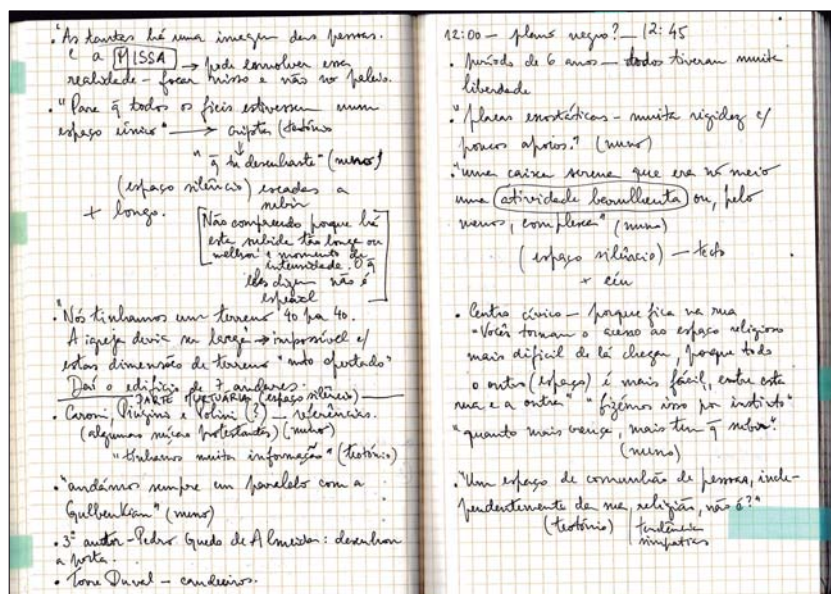 • "As tantas há uma imagem das pessoas.
e a MISSA → pode envolver essa
realidade – focar nisso e não no paleio.
• "Para q̄ todos os fieis estivessem num
espaço único" → criptas (teotónio
"q̄ tu desenhaste" (nuno)
(espaço silêncio) escadas a
subir
+ longo.
Não compreendo porque há
esta subida tão longa ou
melhor é momento de
intensidade. O q̄
eles dizem não é
espacial
• "Nós tínhamos um terreno 40 por 40.
A igreja devia ser larga → impossível c/
estas dimensão de terreno "
Daí o edifício de 7 andares.
PARTE MORTUÁRIA (espaço silêncio)
(?) – referências.
(algumas protestantes) (nuno)
"tínhamos muita informação" (teotónio)
• "andámos sempre em paralelo com a
Gulbenkian" (nuno)
• 3º autor – Pedro Guedo de Almeida: desenhou
a porta.
• Torre Duval – candeeiros.
12:00 – plano negro? – 12:45
• período de 6 anos – todos tiveram muita
liberdade
• "placas – muita rigidez c/
poucos apoios." (nuno)
• "uma caixa serena que era no meio
uma (atividade barulhenta) ou, pelo
menos, complexa" (nuno)
(espaço silêncio) – tecto
+ céu
• Centro cívico – porque fica na rua
"Vocês tornam o acesso ao espaço religioso
mais difícil de lá chegar, porque todo
o outro (espaço) é mais fácil, entre esta
rua e a outra" "fizémos isso por instinto"
"quanto mais avança, mais tem q̄ subir".
(nuno)
• "Um espaço de comunhão de pessoas, inde-
pendentemente da sua religião, não é?"
(teotónio) | tendência
simpatias